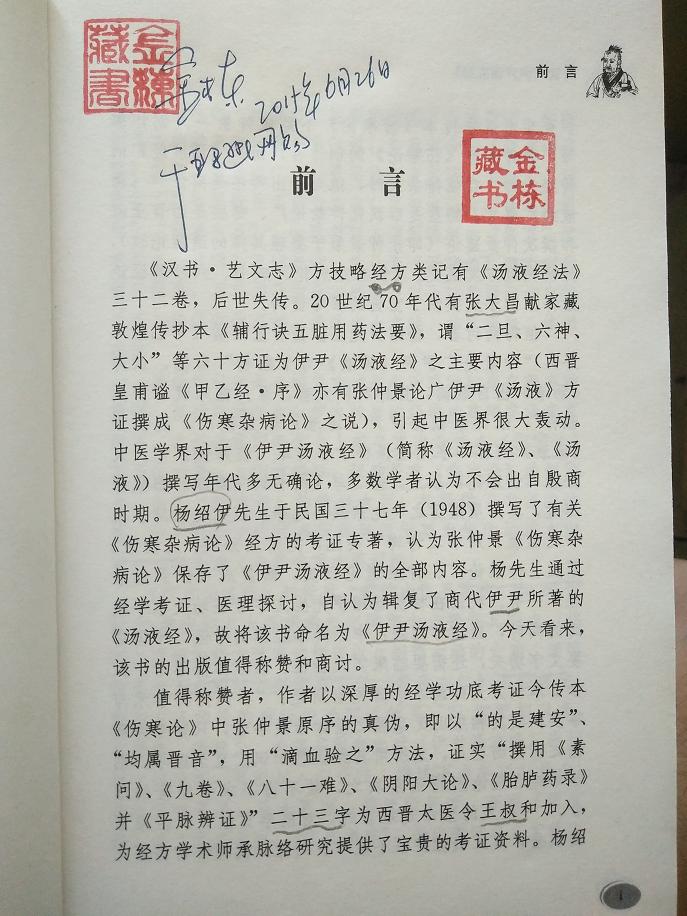 金栋藏書
金栋 2015年6月26日
前言
金栋藏书
前言
《汉书·艺文志》方技略经方类记有《汤液经法》
三十二卷，后世失传。20世纪70年代有张大昌献家藏
敦煌传抄本《辅行诀五脏用药法要》，谓“二旦、六神、
大小”等六十方证为伊尹《汤液经》之主要内容（西晋
皇甫谧《甲乙经·序》亦有张仲景论广伊尹《汤液》方
证撰成《伤寒杂病论》之说），引起中医界很大轰动。
中医学界对于《伊尹汤液经》（简称《汤液经》、《汤
液》）撰写年代多无确论，多数学者认为不会出自殷商
时期。杨绍伊先生于民国三十七年（1948）撰写了有关
《伤寒杂病论》经方的考证专著，认为张仲景《伤寒杂
病论》保存了《伊尹汤液经》的全部内容。杨先生通过
经学考证、医理探讨，自认为辑复了商代伊尹所著的
《汤液经》，故将该书命名为《伊尹汤液经》。今天看来，
该书的出版值得称赞和商讨。
值得称赞者，作者以深厚的经学功底考证今传本
《伤寒论》中张仲景原序的真伪，即以“的是建安”、
“均属晋音”，用“滴血验之”方法，证实“撰用《素
问》、《九卷》、《八十一难》、《阴阳大论》、《胎胪药录》
并《平脉辨证》”二十三字为西晋太医令王叔和加入，
为经方学术师承脉络研究提供了宝贵的考证资料。杨绍
1